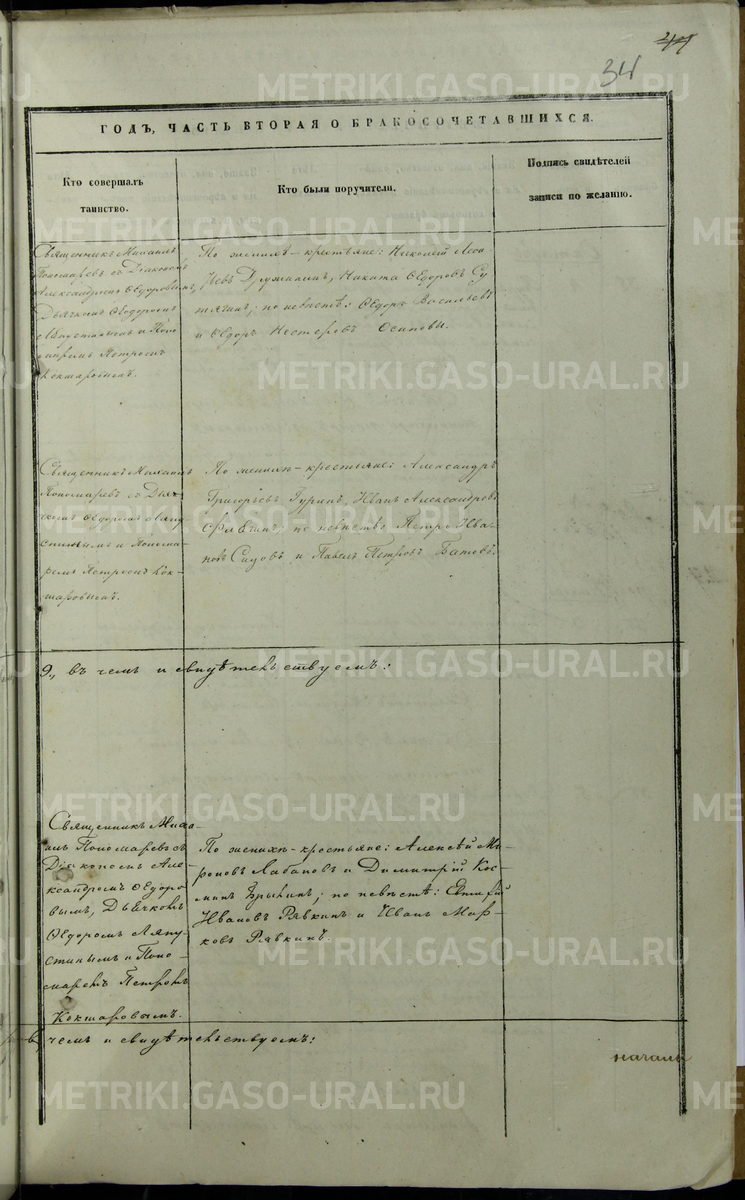 34
ГОДЪ, ЧАСТЬ ВТОРАЯ О БРАКОСОЧЕТАВШИХСЯ.
Кто совершалъ
таинство.
Кто были поручители.
Подпись свидѣтелей
записи по желанію.
Священникъ Михаилъ
Пономаревъ съ Діакономъ
Александромъ Ѳедоровымъ,
Дьячкомъ Ѳедоромъ
Ляпустинымъ и Поно-
маремъ Петромъ
Кокшаровымъ.
По женихѣ – крестьяне: Николай
Дружининъ, Никита Ѳедоровъ
по невѣстѣ: Ѳедоръ Васильевъ
и Ѳедоръ Нестеровъ Осиповы.
Священникъ Михаилъ
Пономаревъ съ Дьяч-
комъ Ѳедоромъ Ляпу-
стинымъ и Понома-
ремъ Петромъ Кок-
шаровымъ.
По женихѣ – крестьяне: Александръ
Григорьевъ Гуринъ, Иванъ Александровъ
по невѣстѣ Петръ Ива-
новъ Сидовъ и Павелъ Петровъ Батовъ.
въ чемъ и свидѣтельствуемъ:
Священникъ Миха-
илъ Пономаревъ съ
Діакономъ Але-
ксандромъ Ѳедоро-
вымъ, Дьячкомъ
Ѳедоромъ Ляпу-
стинымъ и Поно-
маремъ Петромъ
Кокшаровымъ.
По женихѣ – крестьяне: Алексѣй Ми-
роновъ Лабановъ и Димитрій Кос-
минъ Брынинъ; по невѣстѣ:
Ивановъ Рявкинъ и Иванъ Мар-
ковъ Рявкинъ.
чемъ и свидѣтельствуемъ:
начали
METRIKI.GASO-URAL.RU